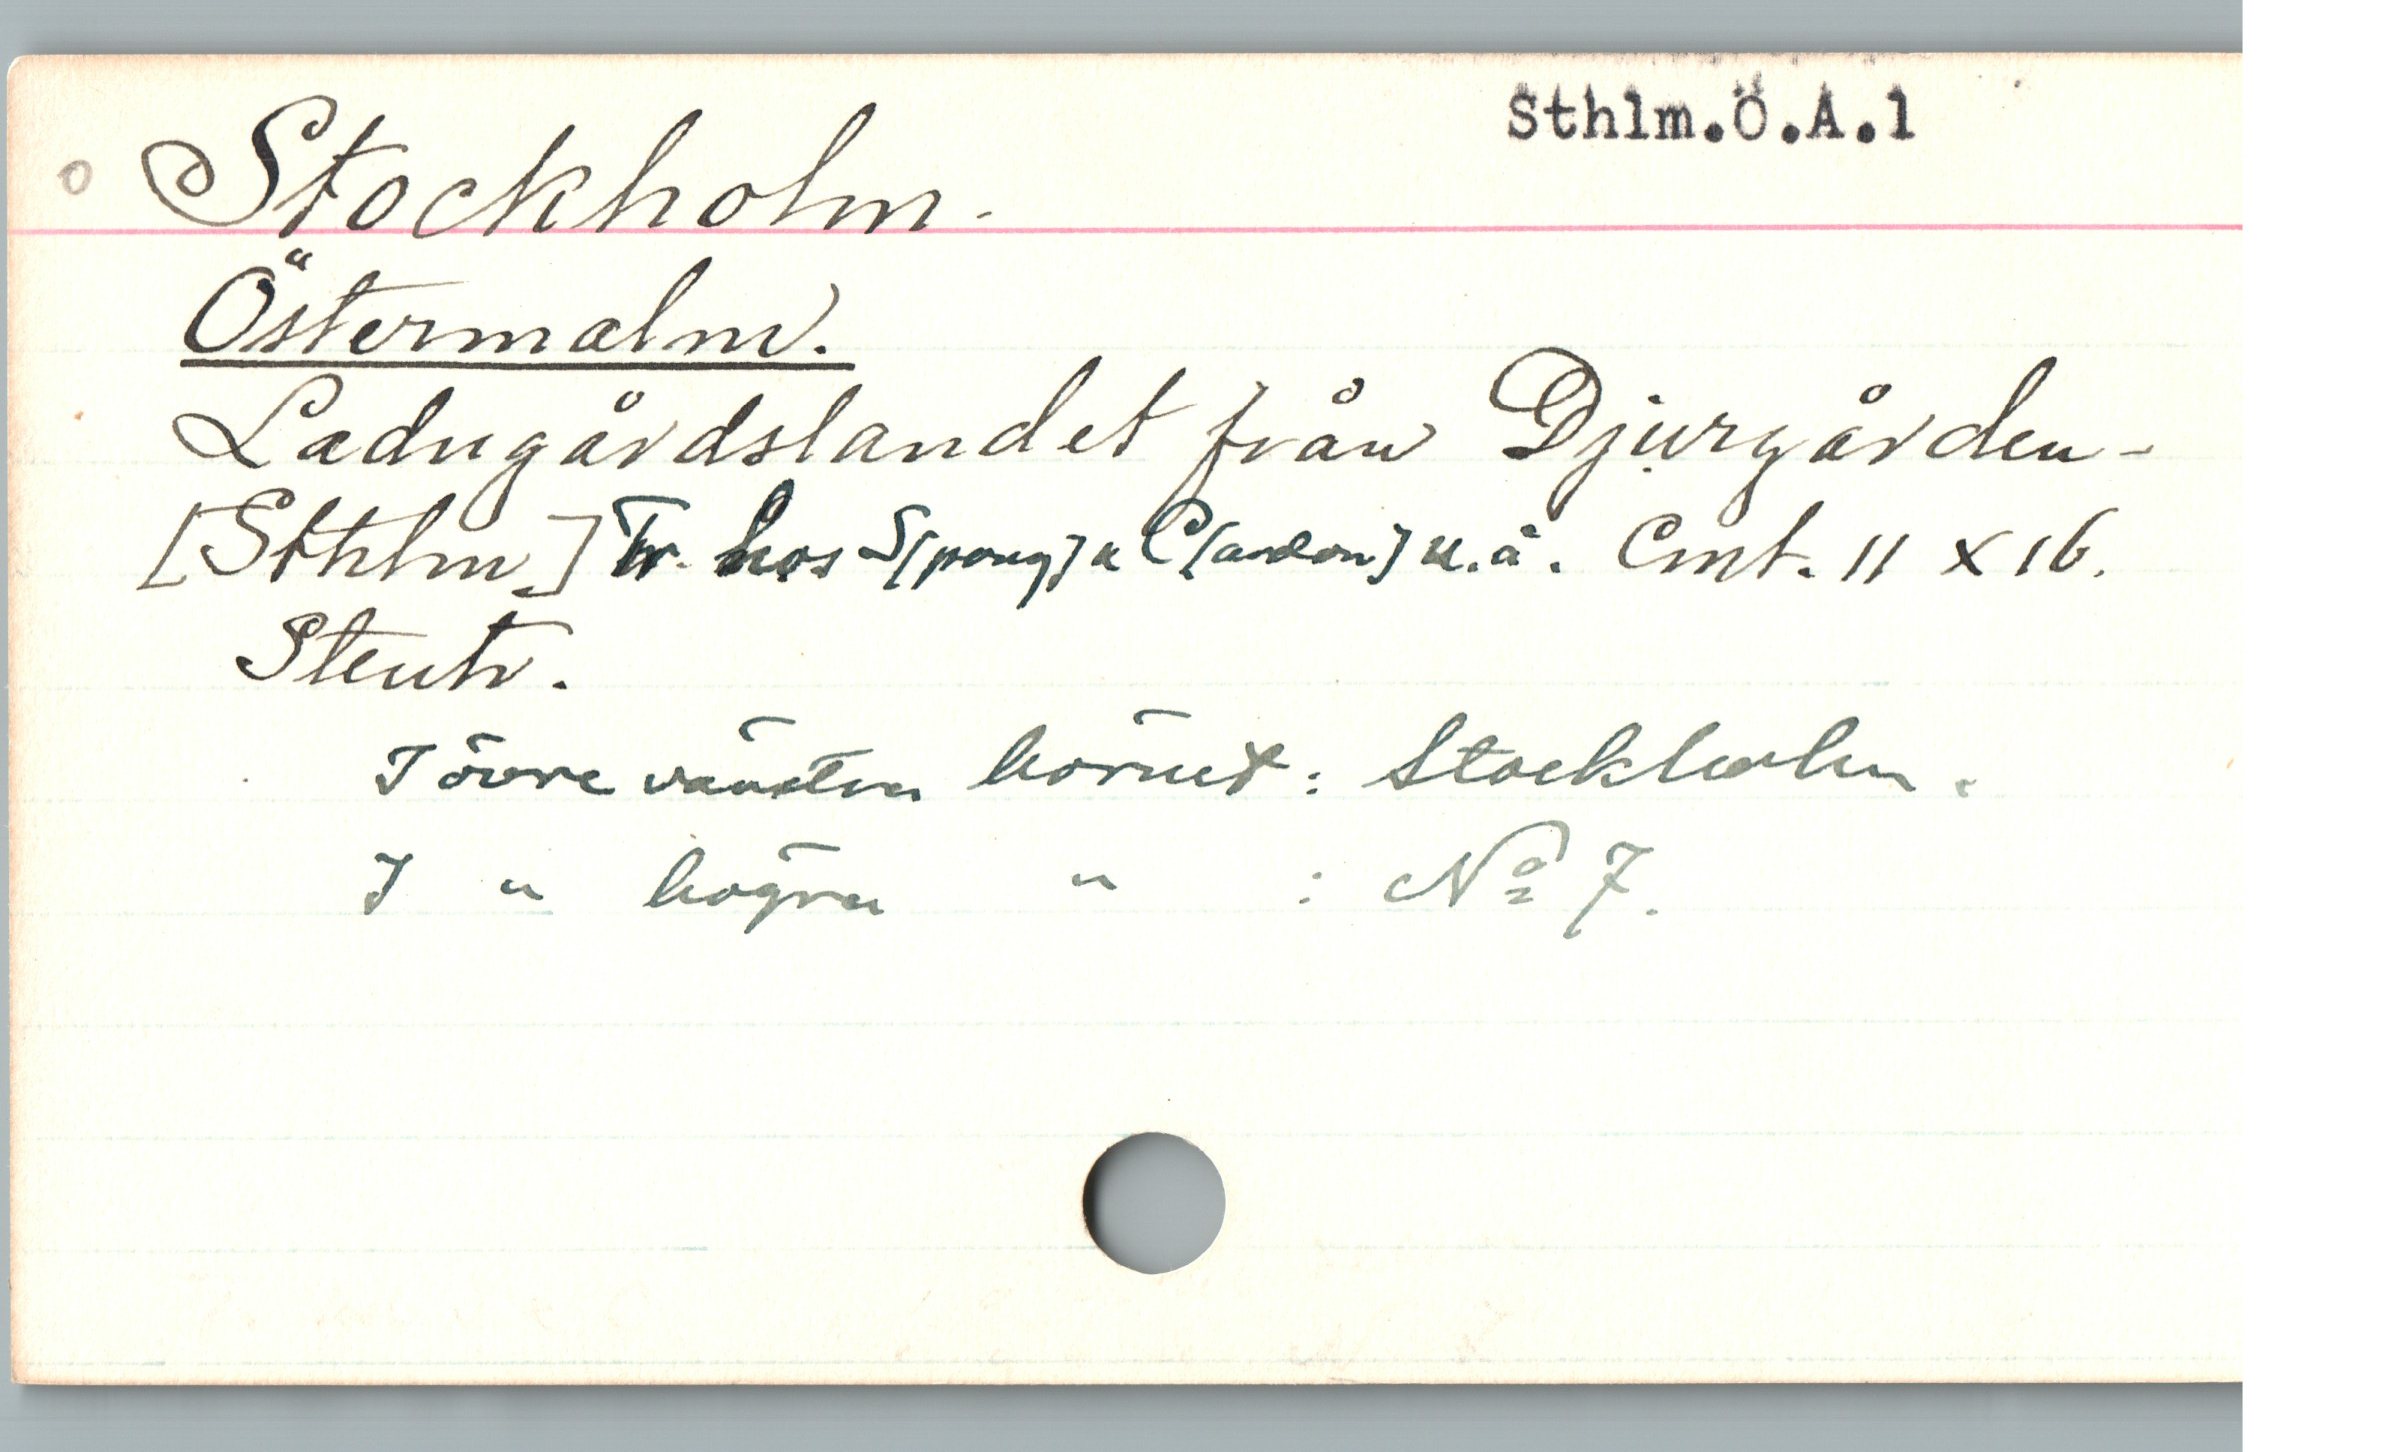 Sthlm.Ö.A.1
Stockholm.
Östermalm.
Ladugårdslandet från Djurgården-
[Sthlm.] Tr. hos S[pong] u C[ardon] u.å. Cmt. 11 x 16.
Stentr.
I övre vänstra hörnet: Stockholm.
I " högra " : No 7.